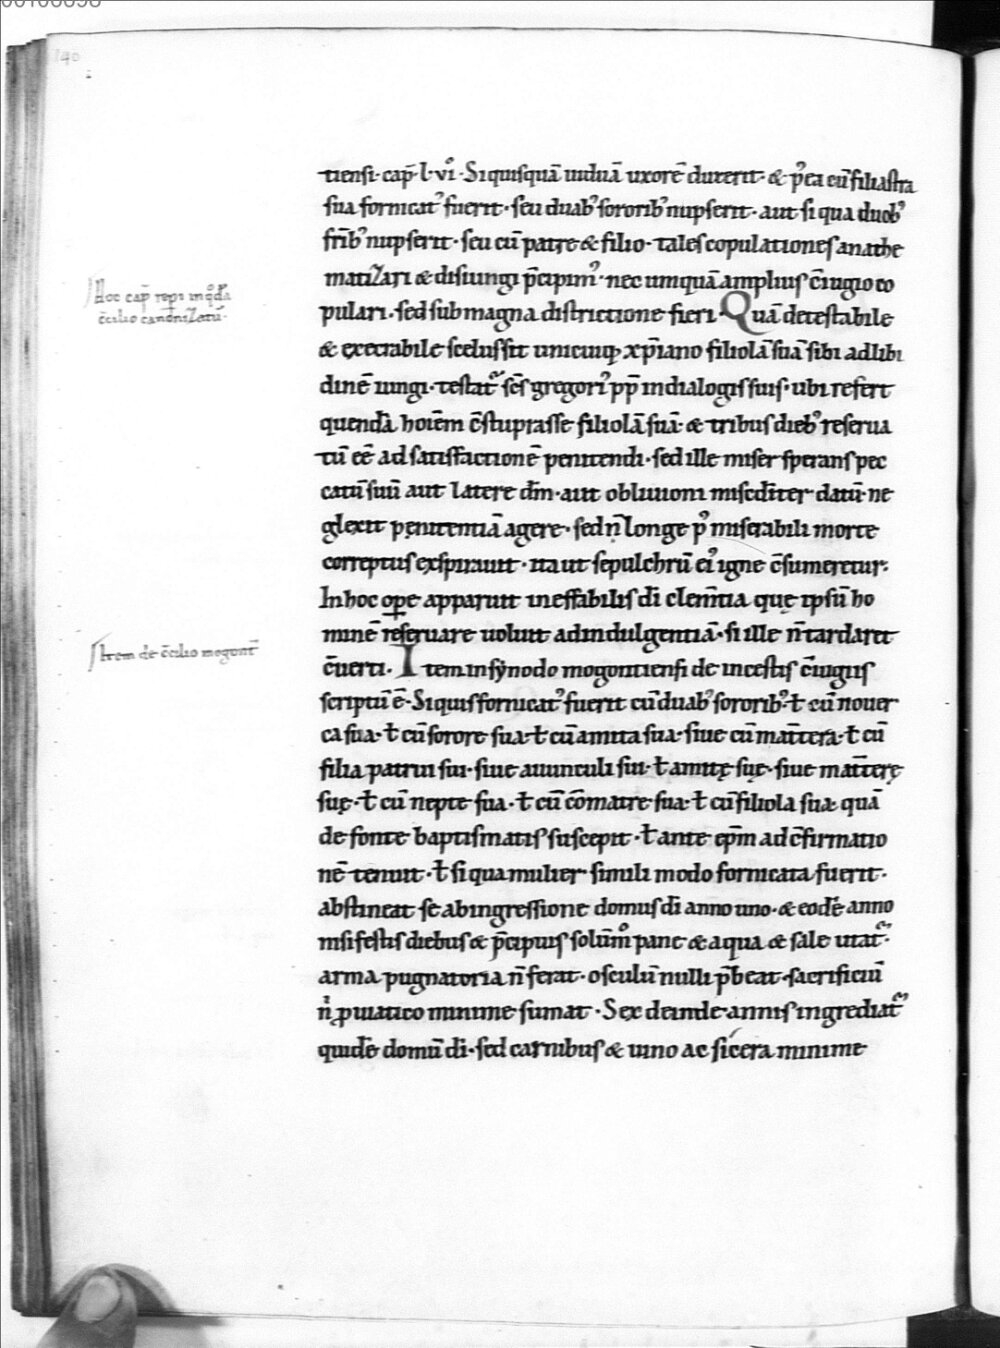 140
tiensi· cap̄· l·vi͛· Siquisquā uiduā uxorē duxerit· & p᷒ea cū filiastra
sua fornicat᷒ fuerit· seu duab᷒ sororib᷒ nupserit· aut si qua duob᷒
frīb᷒ nupserit· seu cū patre & filio· tales copulationes anathe
matizari & disiungi p̄cipim᷒· nec umquā amplius c̄iugio co
pulari· sed sub magna districtione fieri· Quā detestabile
& execrabile scelus sit unicuiq; xp̄iano filiolā suā sibi ad libi
dinē iungi· testat᷒ sc̄s gregori᷒ pp̄ in dialogis suis· ubi refert
quendā hoīem c̄stuprasse filiolā suā· & tribus dieb᷒ reserua
tū eē ad satisfactionē penitendi· sed ille miser sperans pec
catū suū aut latere dm̄· aut obliuioni misc̄diter datū· ne
glexit penitentiā agere· sed n̄ longe p᷒ miserabili morte
correptus exspirauit· ita ut sepulchrū ei᷒ igne c̄sumeretur·
In hoc oꝑe apparuit ineffabilis dī clem̄tia quę ipsū ho
minē reseruare uoluit ad indulgentiā· si ille n̄ tardaret
c̄uerti· Item in synodo mogontiensi de incestis c̄iugiis
scriptū ē· Siquis fornicat᷒ fuerit cū duab᷒ sororib᷒· ł cū nouer
ca sua· ł cū sorore sua· ł cū amita sua· siue cū mat̄tera· ł cū
filia patrui sui· siue auunculi sui· ł amitę suę· siue mat̄terę
suę· ł cū nepte sua· ł cū c̄omatre sua· ł cū filiola sua quā
de fonte baptismatis suscepit· ł ante ep̄m ad c̄firmatio
nē tenuit· ł si qua mulier simili modo fornicata fuerit·
abstineat se ab ingressione domus dī anno uno· & eodē anno
nisi festis diebus & p̄cipuis solūm͛ pane & aqua & sale utat᷒·
arma pugnatoria n̄ ferat· osculū nulli p̄beat· sacrificiū
n͛ ꝓ uiatico minime sumat· Sex deinde annis ingrediat᷒
quidē domū dī· sed carnibus & uino ac sicera minime
Hoc cap̄ repi in q͛dā
c̄cilio canōnizatū·
Item de c̄cilio mogont̄